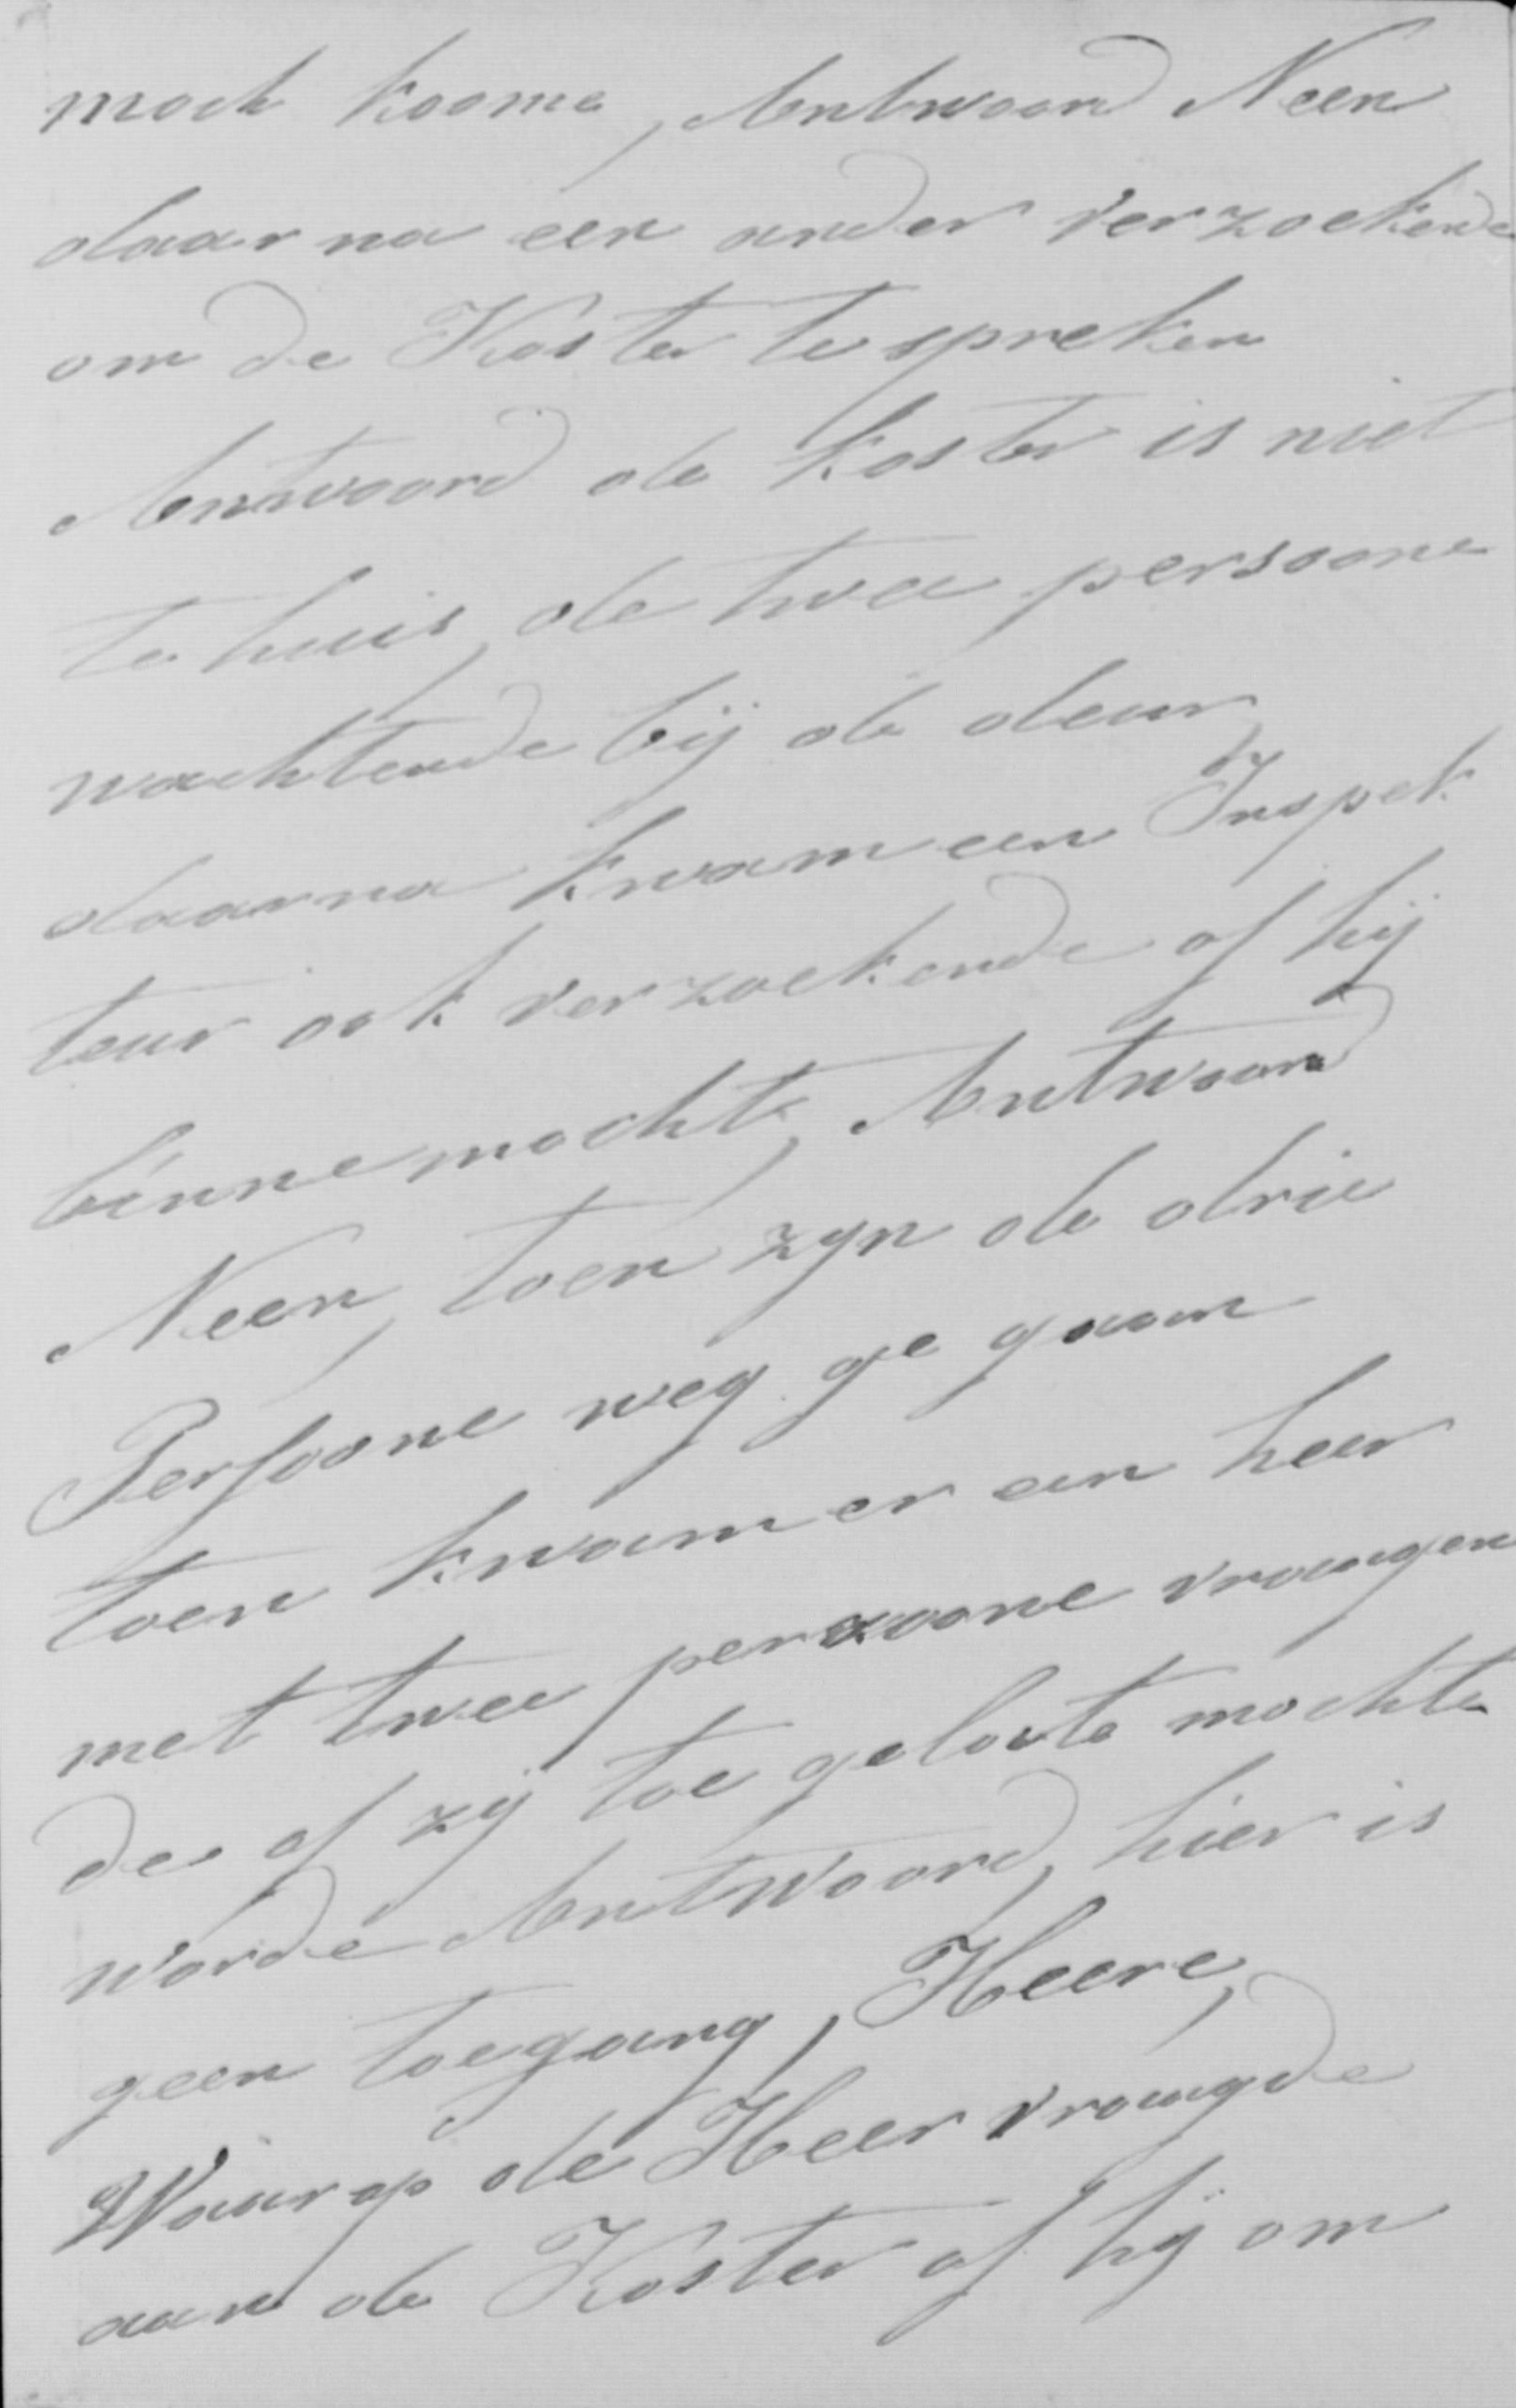 moch koome, Antwoord Neen
daar na een ander verzoekende
om de Koster te spreken
Antwoord de koster is niet
te huis, de twee persoone
wachtende bij de deur,
daarna kwam een Inspek
teur ook verzoekende of hij
binne mochte, Antwoord
Neen, toen zyn de drie
Persoone weg ge gaan
toen kwam er een heer
met twee persoone vraagen
de of zij toe gelaate mochte
worde Antwoord, hier is
geen toegang, Heere,
Waar op de Heer vraagde
aan de Koster of hij om